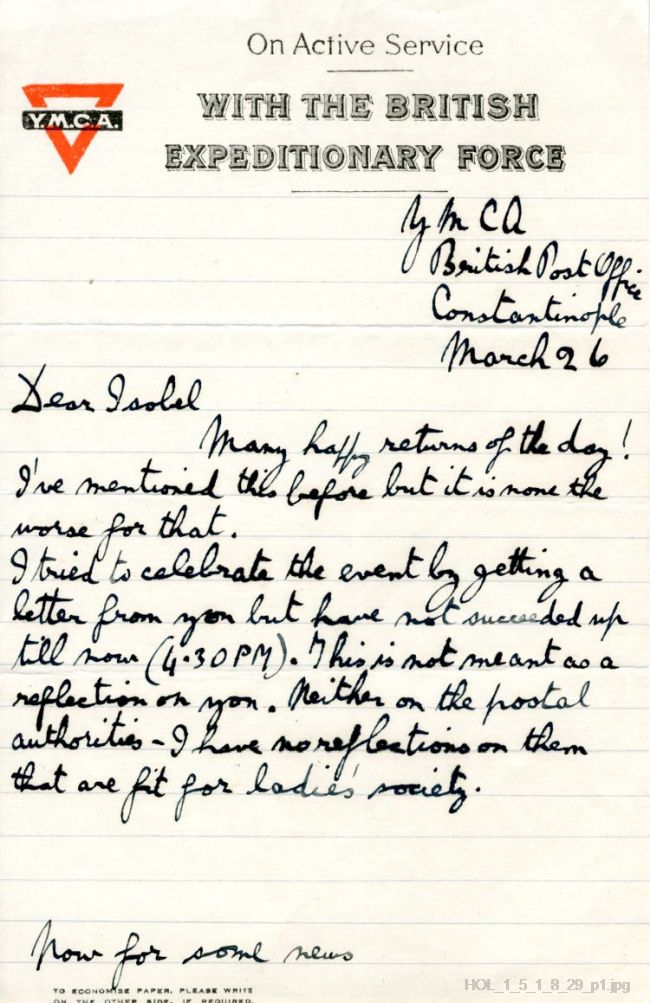 On Active Service
WITH THE BRITISH
EXPEDITIONARY FORCE
Y.M.C.A.
Y M C A
British Post Office
Constantinople
March 26
Dear Isobel
Many happy returns of the day!
I've mentioned this before but it is none the
worse for that.
I tried to celebrate the event by getting a
letter from you but have not succeeded up
till now (4.30 PM). This is not meant as a
reflection on you. Neither on the postal
authorities - I have no reflections on them
that are fit for ladie's society.
Now for some news
TO ECONOMISE PAPER, PLEASE WRITE
ON THE OTHER SIDE, IF REQUIRED.
HOL_1_5_1_8_29_p1.jpg